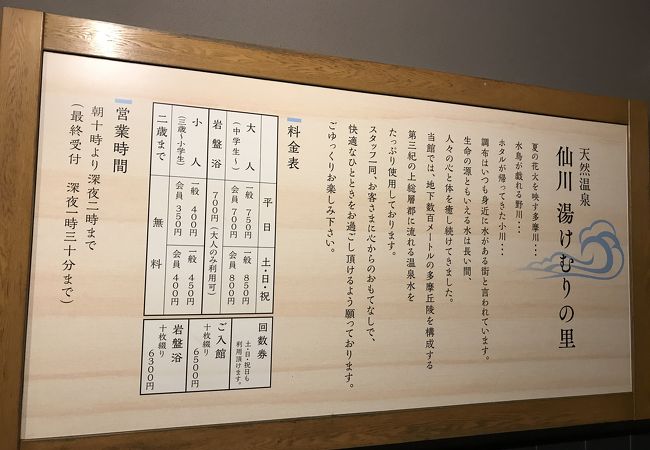 天然温泉
仙川 湯けむりの里
夏の花火を映す多摩川・・・
水鳥が戯れる野川・・・
ホタルが帰ってきた小川・・・
調布はいつも身近に水がある街と言われています。
生命の源ともいえる水は長い間、
人々の心と体を癒し続けてきました。
当館では、地下数百メートルの多摩丘陵を構成する
第三紀の上総層郡に流れる温泉水を
たっぷり使用しております。
スタッフ一同、お客さまに心からのおもてなしで、
快適なひとときをお過ごし頂けるよう願っております。
ごゆっくりお楽しみ下さい。
料金表
平日
土・日・祝
大人
(中学生〜)
一般 750円
会員 700円
一般 850円
会員 800円
岩盤浴
700円(大人のみ利用可)
小人
(三歳〜小学生)
一般 400円
会員 350円
一般 450円
会員 400円
二歳まで
無料
回数券
土・日・祝日も
利用頂けます。
ご入館
十枚綴り
6500円
岩盤浴
十枚綴り
6300円
営業時間
朝十時より深夜二時まで
(最終受付 深夜一時三十分まで)